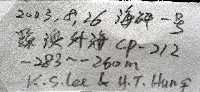 2003, 8, 26 海研一号
龜澳外海 CP-212
-283~-260m
K.S. Lee & Y.T. Hung